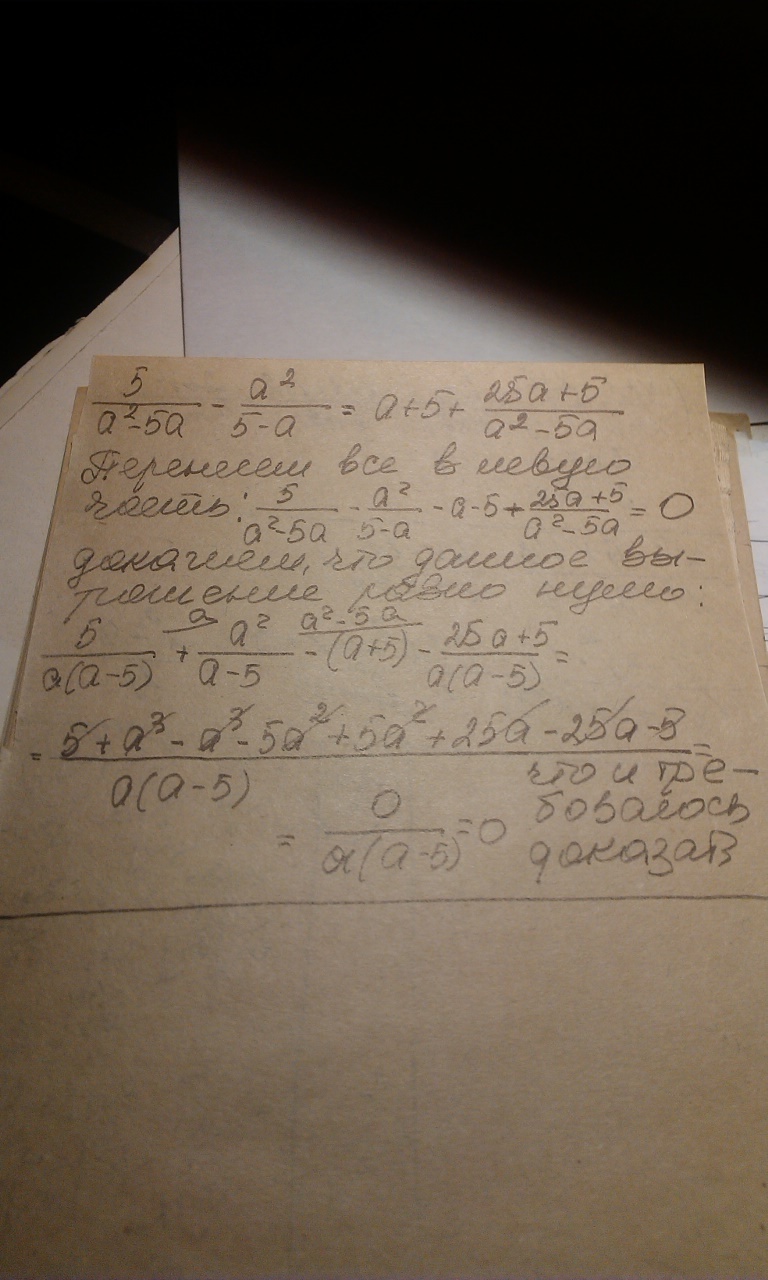 5/(a²-5a) - a²/(5-a) = a+5+ (25a+5)/(a²-5a)
Перенесем все в левую
часть: 5/(a²-5a) - a²/(5-a) - a-5+ (25a+5)/(a²-5a) = 0
докажем, что данное вы-
ражение равно нулю:
5/(a(a-5)) + a²/(a-5) - (a+5) - (25a+5)/(a(a-5)) =
a a²-5a
= (5+a³-a³-5a²+5a²+25a-25a-5)/(a(a-5)) =
= 0/(a(a-5)) = 0
что и тре-
бовалось
доказать